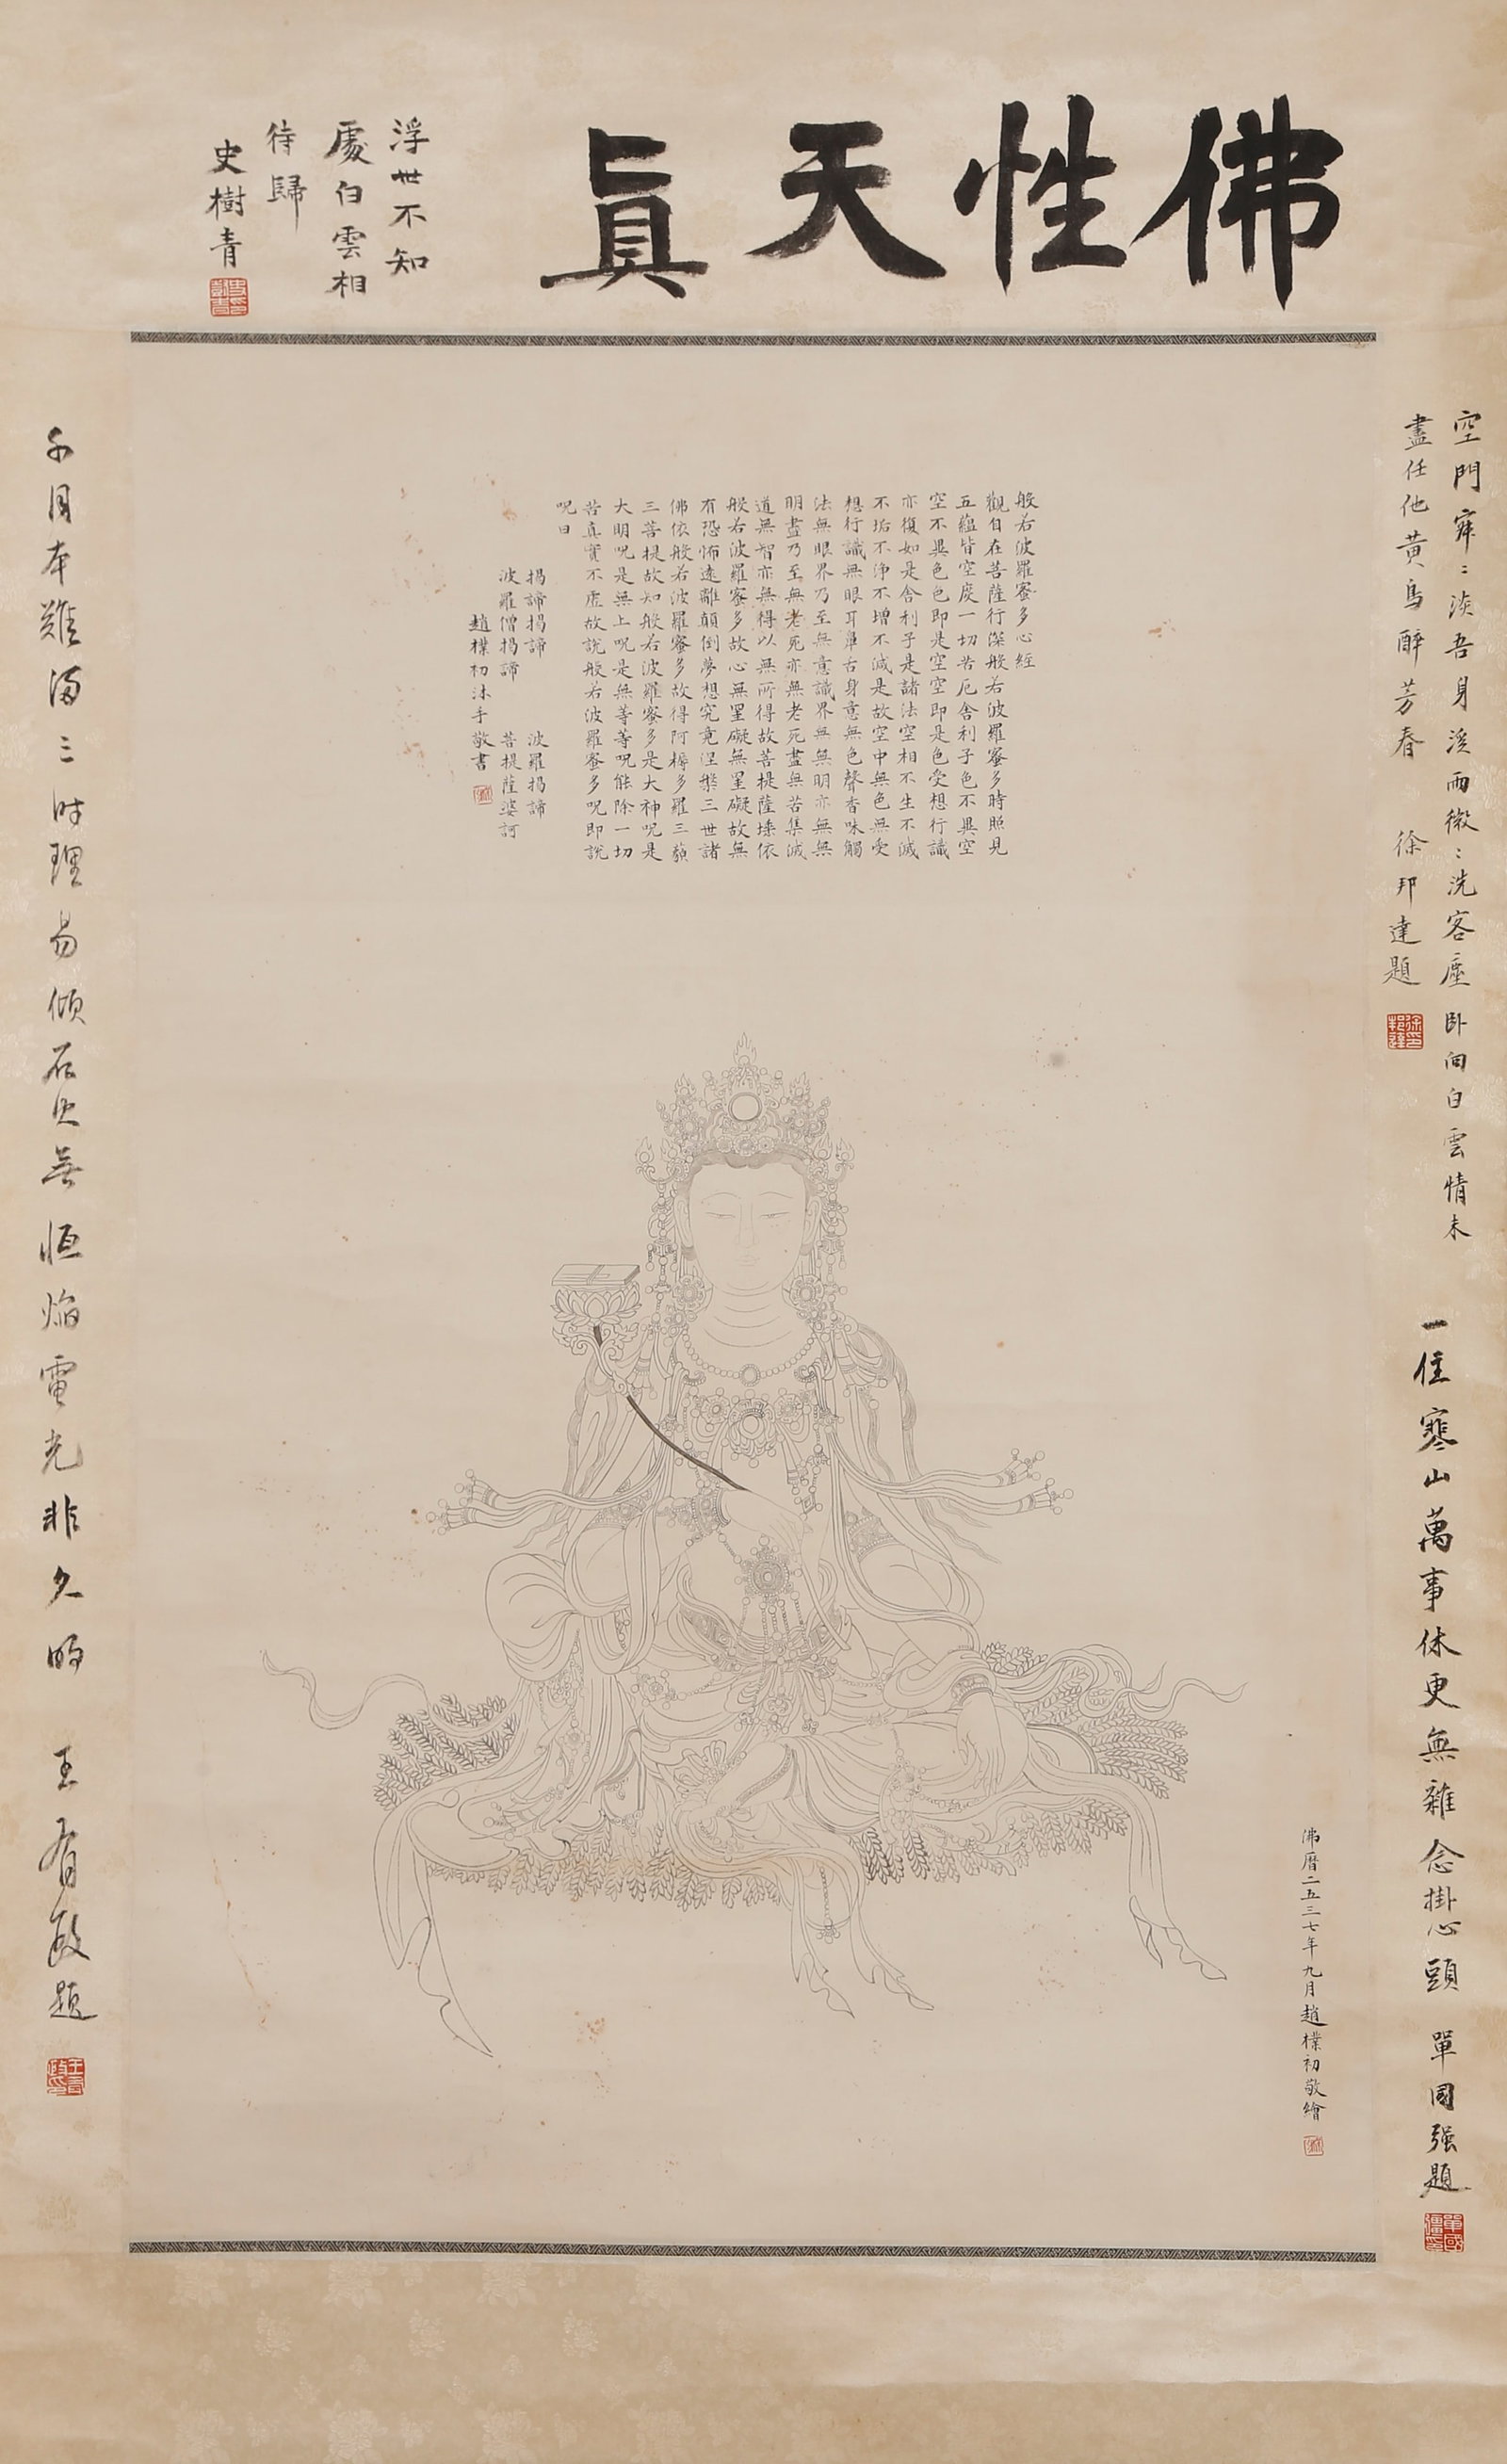 佛性天眞
浮世不知
處白雲相
待歸
史樹青
空門寂〻淡吾身溪雨微〻洗客塵卧向白雲情未
盡任他黃鳥醉芳春 徐邦達題
一住寒山萬事休更無雜念掛心頭 單國强題
般若波羅蜜多心經
觀自在菩薩行深般若波羅蜜多時照見
五蘊皆空度一切苦厄舍利子色不異空
空不異色色即是空空即是色受想行識
亦復如是舍利子是諸法空相不生不滅
不垢不淨不增不減是故空中無色無受
想行識無眼耳鼻舌身意無色聲香味觸
法無眼界乃至無意識界無無明亦無無
明盡乃至無老死亦無老死盡無苦集滅
道無智亦無得以無所得故菩提薩埵依
般若波羅蜜多故心無罣礙無罣礙故無
有恐怖遠離顛倒夢想究竟涅槃三世諸
佛依般若波羅蜜多故得阿耨多羅三藐
三菩提故知般若波羅蜜多是大神呪是
大明呪是無上呪是無等等呪能除一切
苦真實不虛故說般若波羅蜜多呪即說
呪曰
揭諦揭諦 波羅揭諦
波羅僧揭諦 菩提薩婆訶
趙樸初沐手敬書
佛曆二五三七年九月趙樸初敬繪
千月本難滿三時理易傾石火無恒焰電光非久明 王有政題